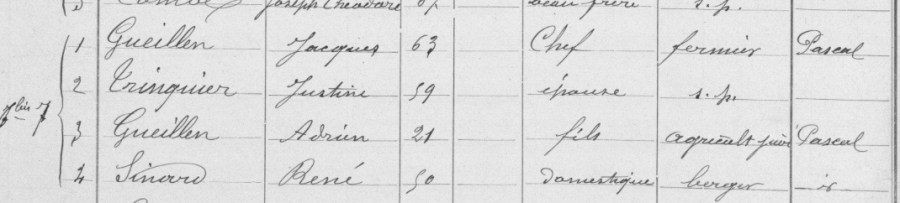 Joseph Théodore beau frère s.p.
1 Gueillen Jacques 63 Chef fermier Pascal
2 Trinquier Justine 59 épouse s.p.
7 bis 7
3 Gueillen Adrien 21 fils agricult Pascal
4 Sinard René 50 domestique berger